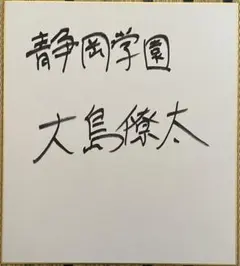 静岡学園
大島僚太